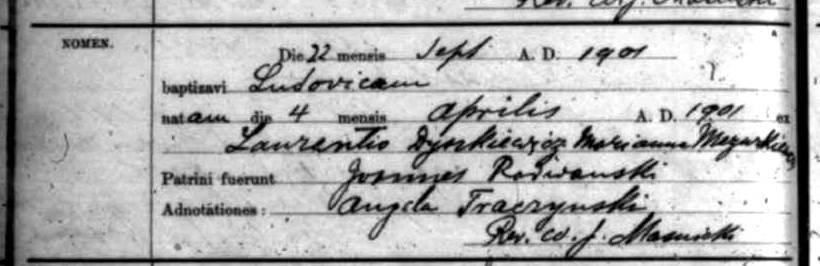 NOMEN.
Die 22 mensis Sept A. D. 1901
baptizavi Ludovicam
natam die 4 mensis aprilis A. D. 1901 ex
Laurentio Dyszkiewicz Marianna
Patrini fuerunt Joannes Radwanski
Adnotationes: Angela Traczynski
Rev. W. J.